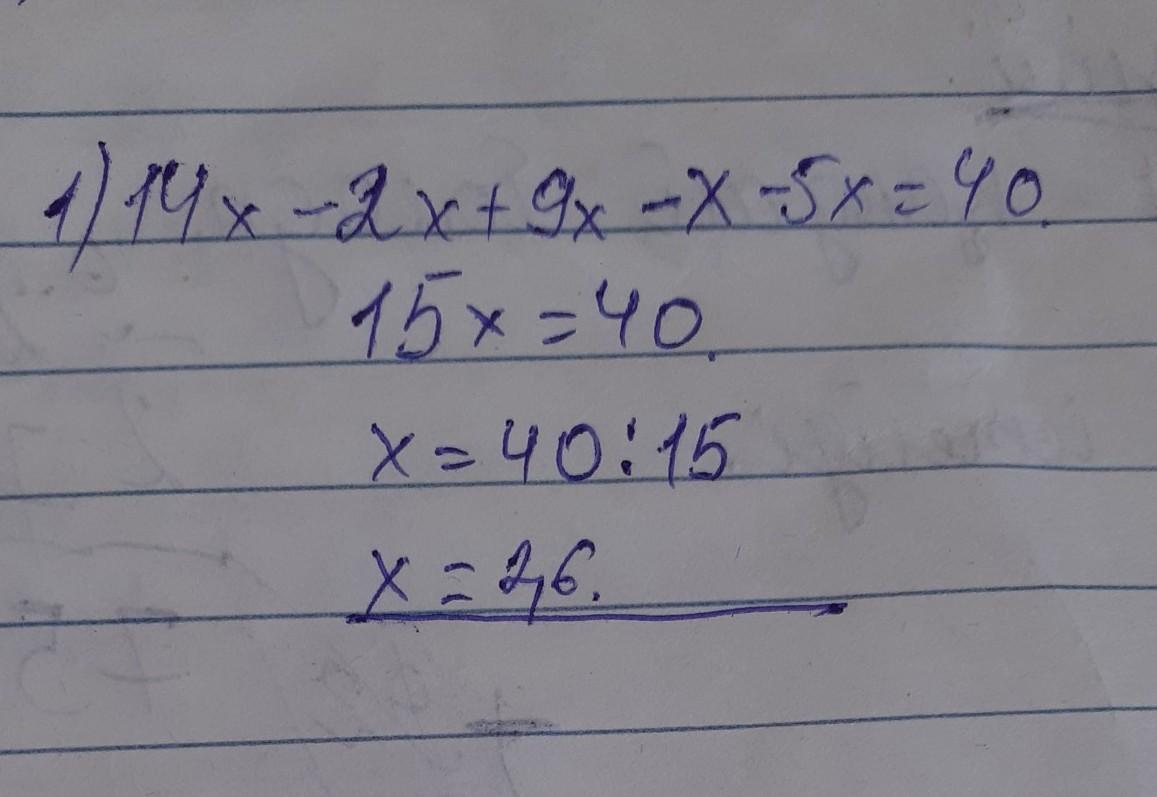 1) 14x - 2x + 9x - x - 5x = 40.
15x = 40.
x = 40 : 15
x = 2,6.